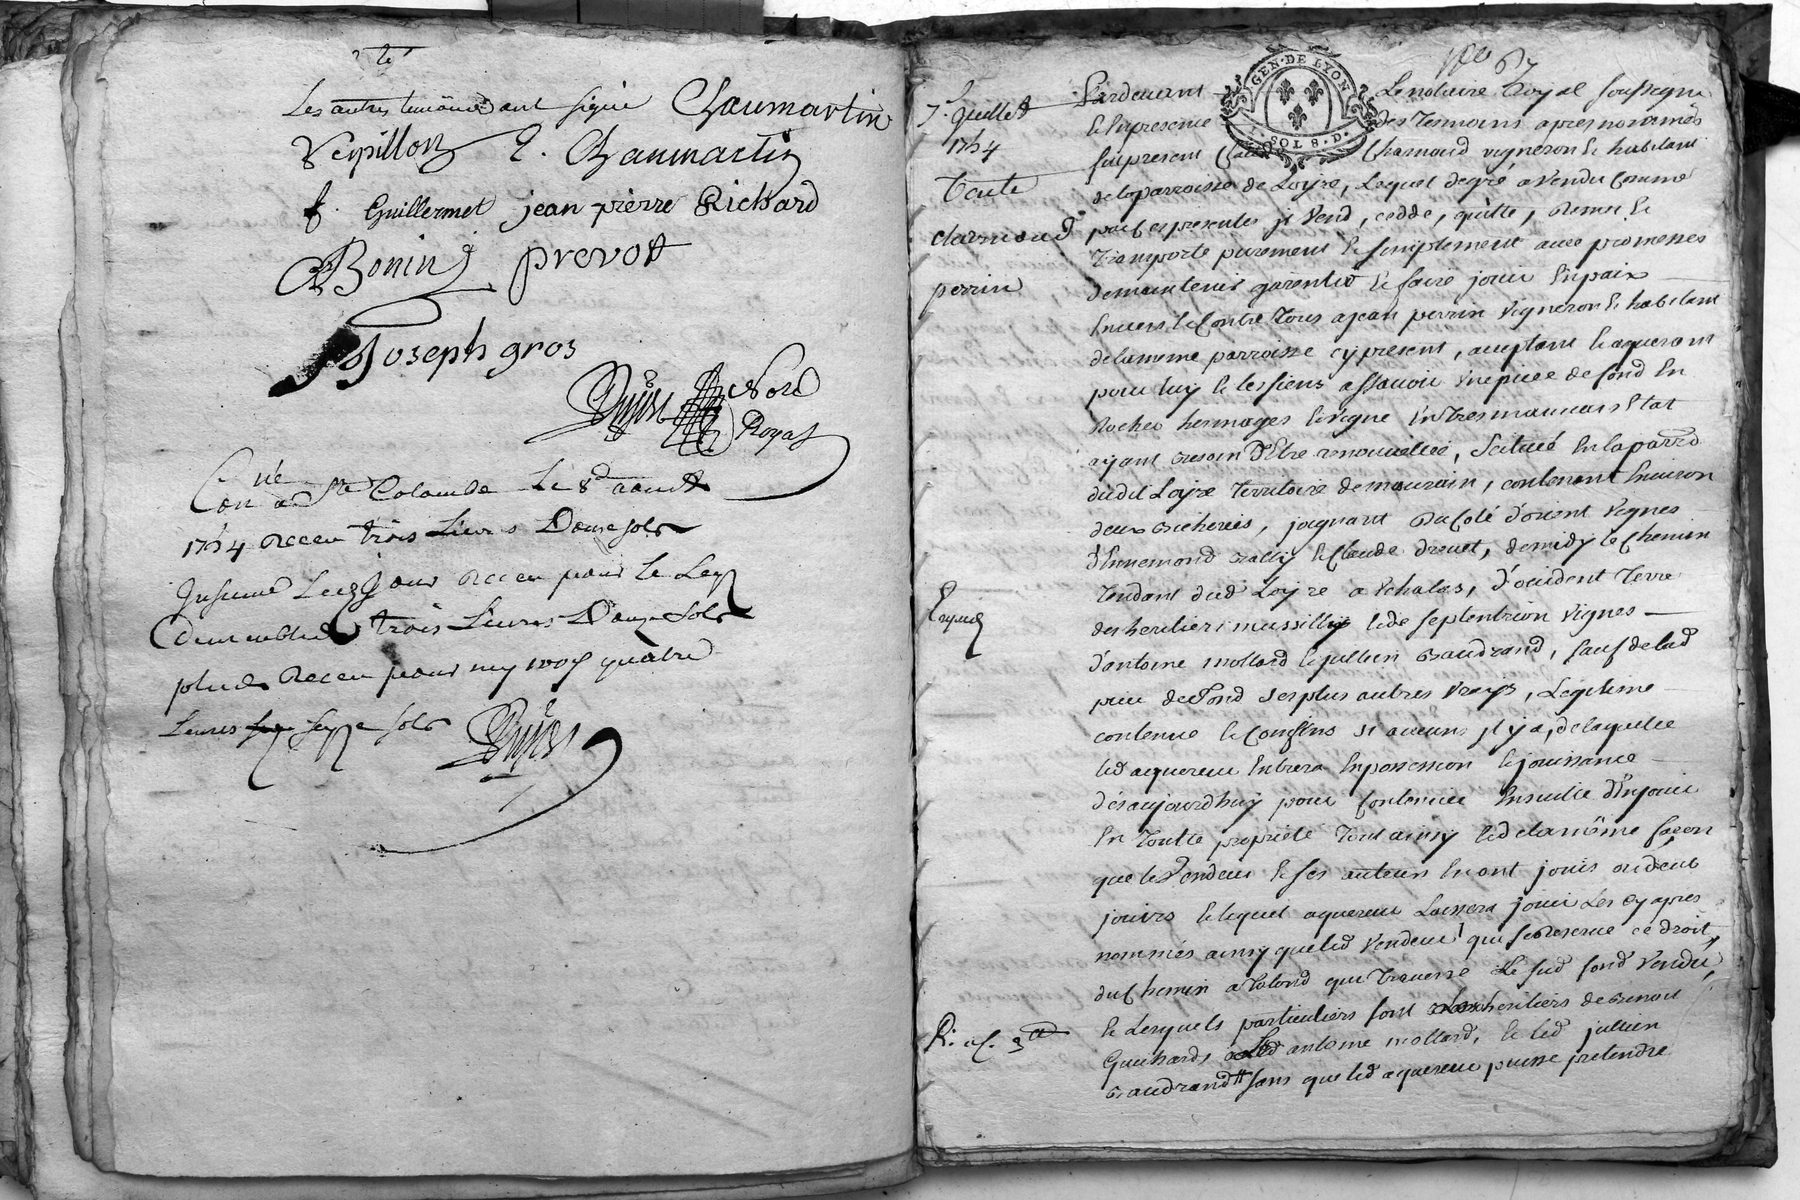 Les autres temoins ont signé Chaumartin
Verpillon E. Chaumartin
f. Guillermet jean pierre Richard
Bonin prevot
Joseph gros
Nore
Royal
Con.né a Ste Colombe Le 8 aoust
1754 Receu trois Livres Douze sols
Insinué Led jour Receu pour le
trois Livres Douze sols
plus Receu pour quatre
Livres seize sols
67
7e Juillet
1754
Vente
charmond
perrin
R. 3tt
Pardevant Le notaire Royal soussigné
et en presence des temoins apres nommés
fut present Charmond vigneron et habitant
de la parroisse de Loire, Lequel de gré a vendu comme
par ces presentes il vend, cedde, quitte, Remet et
transporte purement et simplement avec promesses
de maintenir garentir et faire jouir en paix
envers et contre tous a jean perrin vigneron et habitant
de la meme parroisse cy present, acceptant et aquerant
pour luy et les siens assavoir une piece de fond en
Rochers hermages et vigne en tres mauvais Etat
ayant besoin d'Etre renouvellée, scitué en la parr.
dudit Loire territoire de mourain, contenant environ
deux bicherées, joignant du coté d'orient vignes
d'Ennemond et Claude drevet, de midy le chemin
tendant dud Loire a Echalas, d'occident terre
des heritiers massillon et de septentrion vignes
d'antoine mollard et jullien Gaudrand, sauf de lad
piece de fond ses plus autres vrays, Legitime
contenue et confins si aucuns il y a, de laquelle
led aquereur entrera en possession et jouissance
des aujourdhuy pour continuer ensuite d'En jouir
en toutte proprieté tout ainsy et de la même façon
que le Vendeur et ses auteurs en ont jouis ou deub
jouirs et lequel aquereur Laissera jouir Les cy apres
nommés ainsy que led Vendeur qui se Reserve ce droit
du chemin a talond que traverse Le sud fond Vendu
et Lesquels particuliers sont les heritiers de Benoit
Guichard, led antoine mollard, et led jullien
Gaudrand sans que led aquereur puisse pretendre